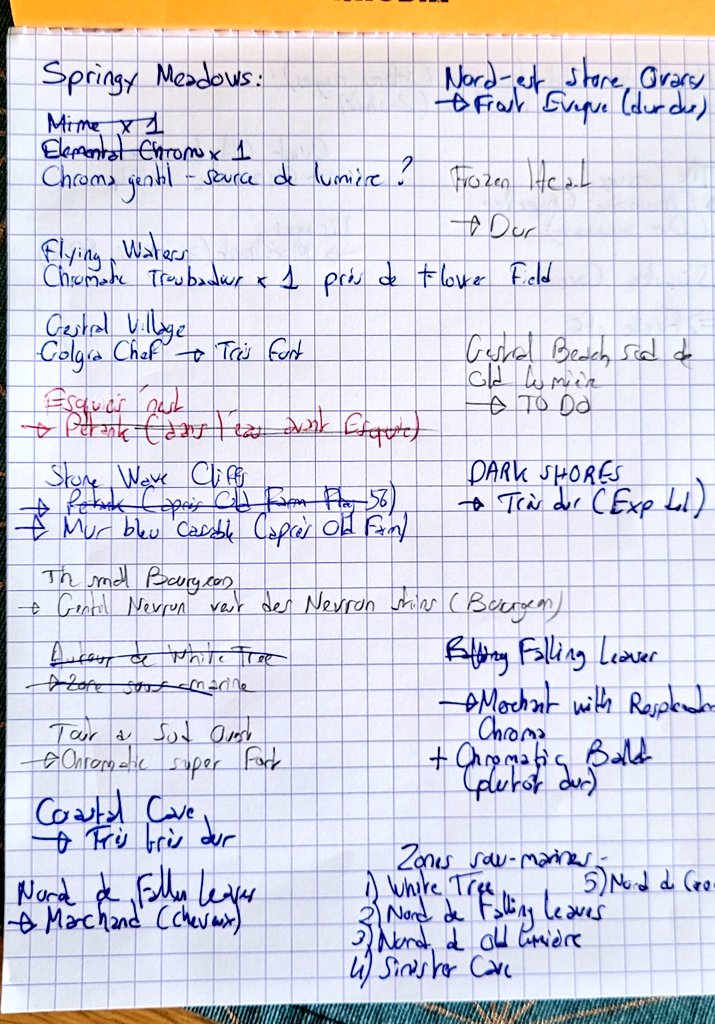 Springy Meadows:
Mime x 1
Elemental Chroma x 1
Chroma gentil - source de lumière ?
Flying Waters
Chromatic Troubadour x 1 près de Flower Field
Gestral Village
Golgra Chef → Très Fort
Esquies nest
→ Petank (dans l'eau avant Esquie)
Stone Wave Cliffs
→ Petank (après Old Farm Flag 56)
→ Mur bleu cassable (après Old Farm)
Bourgeon
→ Gentil Nevron veut des Nevron skins (Bourgeon)
Autour de White Tree
→ Zone sous-marine
Tour Sud Ouest
→ Chromatic super Fort
Coastal Cave
→ Très très dur
Nord de Fallen Leaves
→ Marchand (cheveux)
Nord-est Stone
→ Eveque (dur dur)
Frozen Heart
→ Dur
Gestral Beach, sud de
Old Lumière
→ TO DO
DARK SHORES
→ Très dur (Exp
Falling Leaves
→ Merchant with
Chroma
+ Chromatic Ballet
(plutôt dur)
Zones sous-marines -
1) White Tree
2) Nord de Falling Leaves
3) Nord d Old Lumière
4) Sinister Cave
5) Nord d